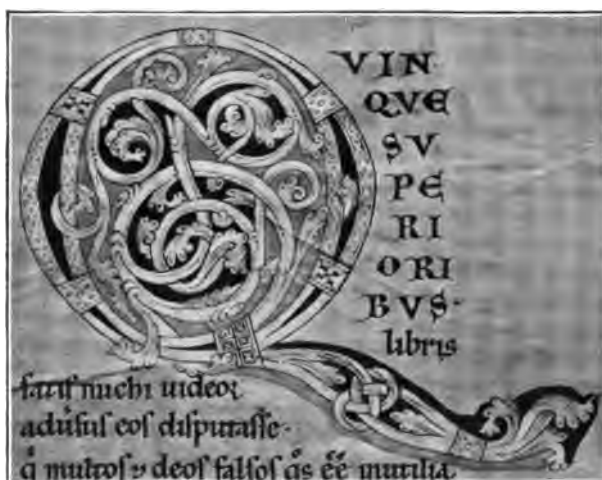 QVIN
QVE
SV
PE
RI
ORI
BVS·
libris
ſatiſ michi uideor
aduͥſuſ eoſ diſputaſſe·
qͥ multoſ ⁊ deoſ falſoſ qͦs ēē inutilia